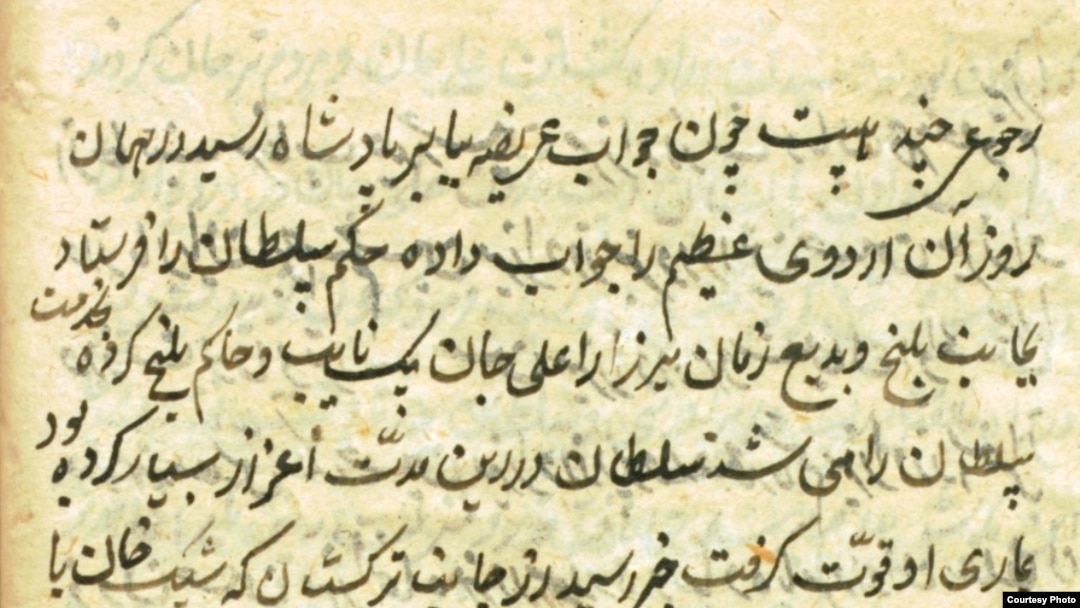 رجوعی چند پست چون جواب عریضه ببابر پادشاه رسید در همان
روز آن اردوی عظیم را جواب داده حکم سلطان را فرستاد
بجانب بلخ و بدیع زمان میرزا را علی جان بیک نایب و حاکم بلخ کرده بخدمت
سلطان راهی شد سلطان درین مدت اعزاز بسیار کرده بود
یاری او قوّت گرفت خبر رسید از جانب ترکستان که شیبک خان با
Courtesy Photo